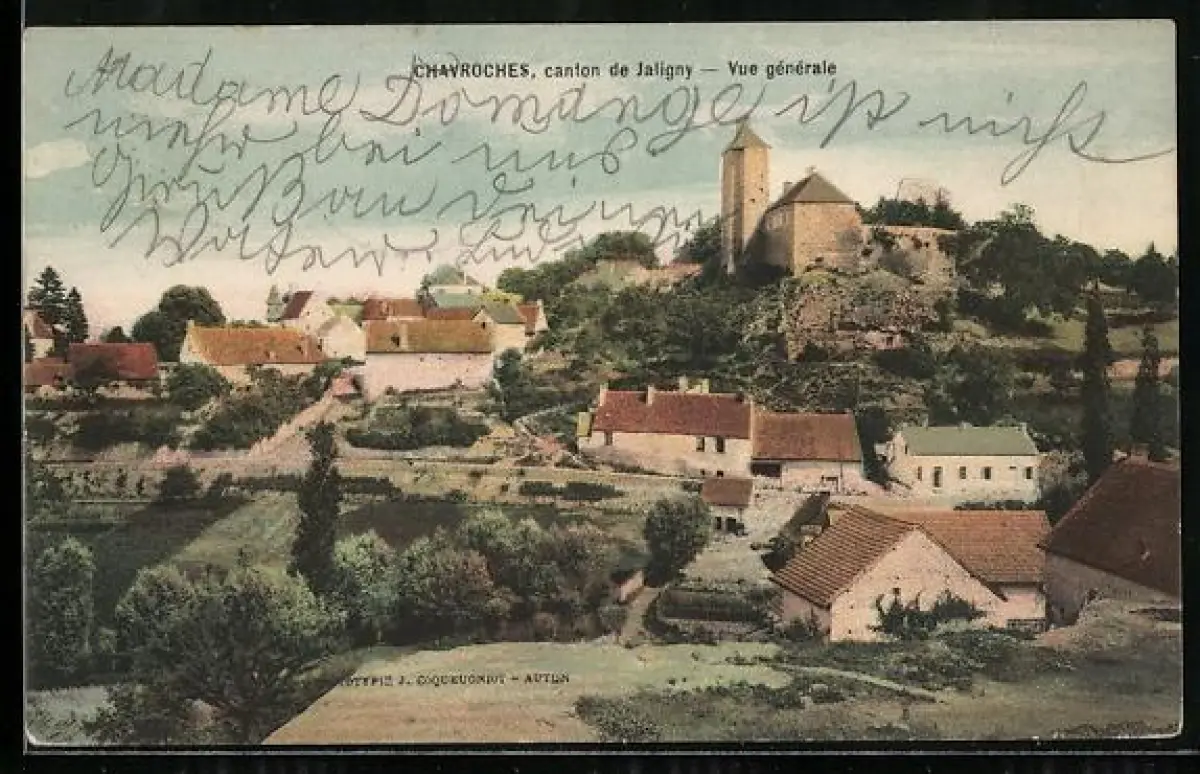 CHAVROCHES, canton de Jaligny — Vue générale
Madame Domange ist nicht
mehr bei uns
Gruß an Deine
J. COQUEUGNIOT - AUTUN